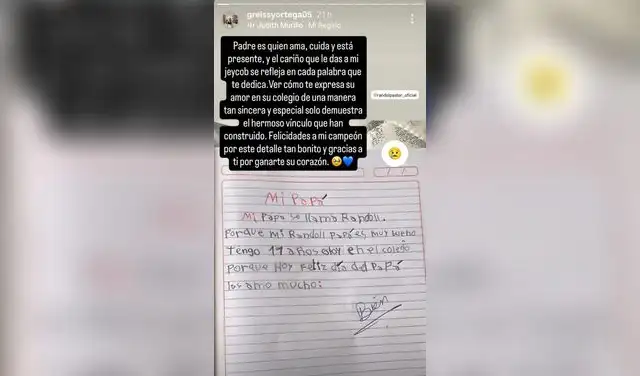 greissyortega05 21 h
Judith Murillo · Mi Regalo
Padre es quien ama, cuida y está
presente, y el cariño que le das a mi
jeycob se refleja en cada palabra que
te dedica.Ver cómo te expresa su
amor en su colegio de una manera
tan sincera y especial solo demuestra
el hermoso vínculo que han
construido. Felicidades a mi campeón
por este detalle tan bonito y gracias a
ti por ganarte su corazón. 🥹💙
Mi PaPá
Mi Papa se llama Randoll.
Porque mi Randoll Papá es muy bueno
tengo 11 años estoy en el colegio
Porque Hoy Feliz dia del PaPá
los amo mucho:
Bien